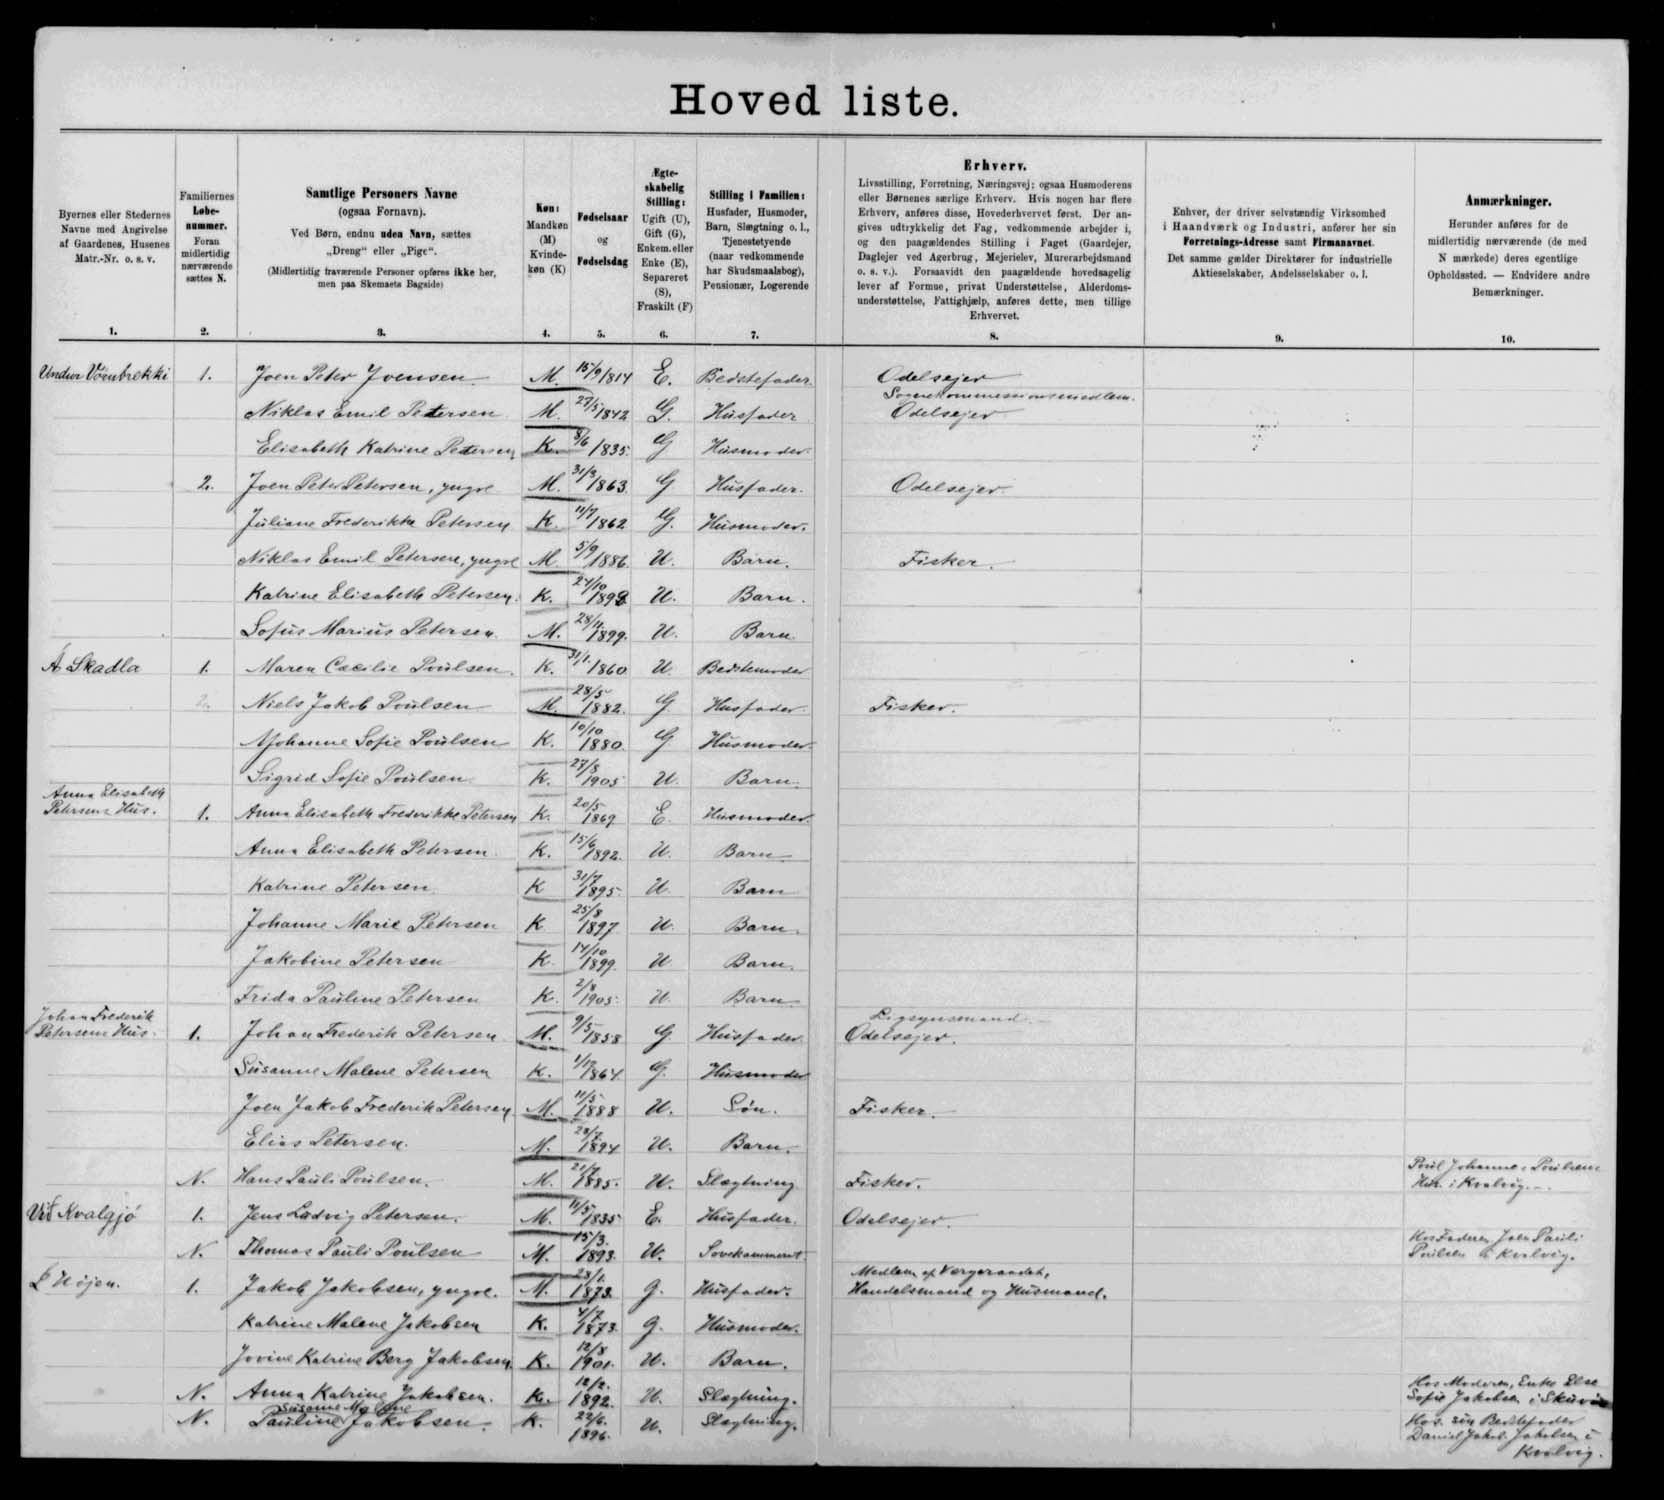 Hoved liste.
Byernes eller Stedernes
Navne med Angivelse
af Gaardenes, Husenes
Matr.-Nr. o. s. v.
1.
Familiernes
Løbe-
nummer.
Foran
midlertidig
nærværende
sættes N.
2.
Samtlige Personers Navne
(ogsaa Fornavn).
Ved Børn, endnu uden Navn, sættes
„Dreng“ eller „Pige“.
(Midlertidig fraværende Personer opføres ikke her,
men paa Skemaets Bagside)
3.
Køn:
Mandkøn
(M)
Kvinde-
køn (K)
4.
Fødselsaar
og
Fødselsdag
5.
Ægte-
skabelig
Stilling:
Ugift (U),
Gift (G),
Enkem. eller
Enke (E),
Separeret
(S),
Fraskilt (F)
6.
Stilling i Familien:
Husfader, Husmoder,
Barn, Slægtning o. l.,
Tjenestetyende
(naar vedkommende
har Skudsmaalsbog),
Pensionær, Logerende
7.
Erhverv.
Livsstilling, Forretning, Næringsvej; ogsaa Husmoderens
eller Børnenes særlige Erhverv. Hvis nogen har flere
Erhverv, anføres disse, Hovederhvervet først. Der an-
gives udtrykkelig det Fag, vedkommende arbejder i,
og den paagældendes Stilling i Faget (Gaardejer,
Daglejer ved Agerbrug, Mejerielev, Murerarbejdsmand
o. s. v.). Forsaavidt den paagældende hovedsagelig
lever af Formue, privat Understøttelse, Alderdoms-
understøttelse, Fattighjælp, anføres dette, men tillige
Erhvervet.
8.
Enhver, der driver selvstændig Virksomhed
i Haandværk og Industri, anfører her sin
Forretnings-Adresse samt Firmanavnet.
Det samme gælder Direktører for industrielle
Aktieselskaber, Andelsselskaber o. l.
9.
Anmærkninger.
Herunder anføres for de
midlertidig nærværende (de med
N mærkede) deres egentlige
Opholdssted. — Endvidere andre
Bemærkninger.
10.
Undur Vömbrekki 1. Joen Peter Joensen M. 15/9 1814 E. Bedstefader. Odelsejer
Sognekommissionsmedlem.
Niklas Emil Petersen M. 27/5 1842 G. Husfader Odelsejer
Elisabeth Katrine Petersen K. 8/6 1835. G Husmoder.
2. Joen Peter Petersen, yngre M. 31/3 1863. G Husfader. Odelsejer.
Juliane Frederikke Petersen K. 11/7 1862 G. Husmoder.
Niklas Emil Petersen, yngre M. 5/9 1886. U. Barn. Fisker.
Katrine Elisabeth Petersen. K. 24/10 1892 U. Barn.
Sofus Marius Petersen. M. 28/11 1899. U. Barn.
Á Skadla 1. Maren Cæcilie Poulsen. K. 31/1. 1860 U. Bedstemoder
2. Niels Jakob Poulsen M. 28/5 1882. G. Husfader. Fisker.
Johanne Sofie Poulsen K. 10/10 1880. G Husmoder.
Sigrid Sofie Poulsen K. 27/8 1905 U. Barn.
Anna Elisabeth
Petersens Hus. 1. Anna Elisabeth Frederikke Petersen K. 20/5 1869 E. Husmoder.
Anna Elisabeth Petersen. K. 15/6 1892. U. Barn
Katrine Petersen K 31/7 1895. U. Barn
Johanne Marie Petersen K. 25/8 1897 U. Barn.
Jakobine Petersen K. 14/10 1899. U Barn.
Frida Pauline Petersen K. 2/8 1905. U. Barn
Johan Frederik Ligsynsmand.
Petersens Hus. 1. Johan Frederik Petersen M. 9/5 1858 G Husfader Odelsejer.
Susanne Malene Petersen K. 1864. G. Husmoder
Joen Jakob Frederik Petersen M. 11/5 1888 U. Søn. Fisker.
Elias Petersen. M. 1894 U. Barn.
Poul Johannes Poulsens
N. Hans Pauli Poulsen. M. 21/7 1885. U. Slægtning Fisker. Hus. i Kvalvig.
Við Kvalgjó 1. Jens Ludvig Petersen. M. 11/5 1835 E. Husfader. Odelsejer.
Hos Faderen Joen Pauli
N. Thomas Pauli Poulsen M. 15/3. 1893. U. Sovekammerat Poulsen i Kvalvig.
Medlem af Værgeraadet,
Højen. 1. Jakob Jakobsen, yngre. M. 28/1. 1873. G. Husfader. Handelsmand og Husmand.
Katrine Malene Jakobsen K. 4/7 1873. G. Husmoder.
Jovine Katrine Berg Jakobsen. K. 12/8 1901. U. Barn.
Hos Moderen, Enke Else
N. Anna Katrine Jakobsen. K. 12/2. 1892. U. Slægtning. Sofie Jakobsen i Skuvoe
Susanne Malene Hos sin Bedstefader
N. Pauline Jakobsen. K. 22/6. 1896. U. Slægtning. Daniel Jakob Jakobsen i
Kvalvig.